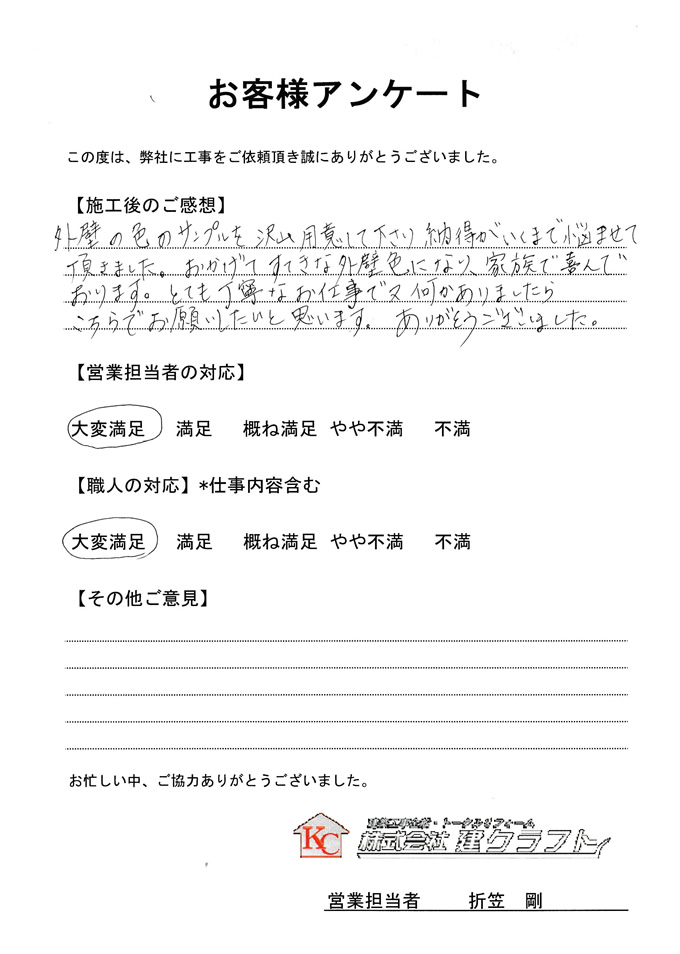 お客様アンケート
この度は、弊社に工事をご依頼頂き誠にありがとうございました。
【施工後のご感想】
外壁の色のサンプルを沢山用意して下さり納得がいくまで悩ませて
頂きました。おかげですてきな外壁色になり、家族で喜んで
おります。とても丁寧なお仕事で又何かありましたら
こちらでお願いしたいと思います。ありがとうございました。
【営業担当者の対応】
大変満足 満足 概ね満足 やや不満 不満
【職人の対応】*仕事内容含む
大変満足 満足 概ね満足 やや不満 不満
【その他ご意見】
お忙しい中、ご協力ありがとうございました。
KC
トータルリフォーム
株式会社 建クラフト
営業担当者 折笠 剛